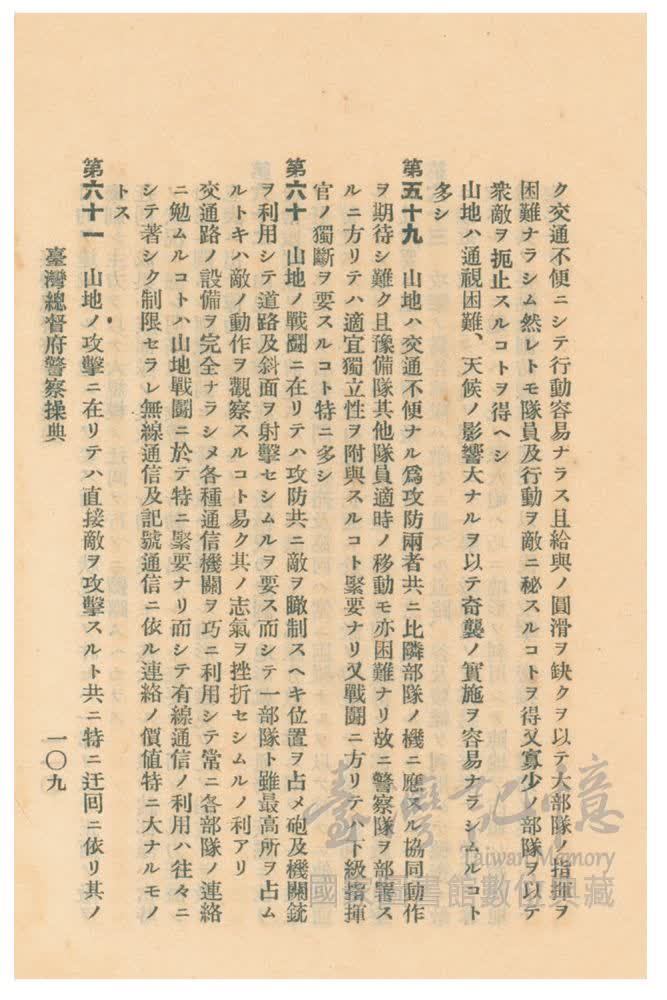 ク交通不便ニシテ行動容易ナラス且給與ノ圓滑ヲ缺クヲ以テ大部隊ノ指揮ヲ
困難ナラシム然レトモ隊員及行動ヲ敵ニ秘スルコトヲ得又寡少ノ部隊ヲ以テ
衆敵ヲ扼止スルコトヲ得ヘシ
山地ハ通視困難、天候ノ影響大ナルヲ以テ奇襲ノ實施ヲ容易ナラシムルコト
多シ
第五十九 山地ハ交通不便ナル爲攻防兩者共ニ比隣部隊ノ機ニ應スル協同動作
ヲ期待シ難ク且豫備隊其他隊員適時ノ移動モ亦困難ナリ故ニ警察隊ヲ部署ス
ルニ方リテハ適宜獨立性ヲ附與スルコト緊要ナリ又戰鬪ニ方リテハ下級指揮
官ノ獨斷ヲ要スルコト特ニ多シ
第六十 山地ノ戰鬪ニ在リテハ攻防共ニ敵ヲ瞰制スヘキ位置ヲ占メ砲及機關銃
ヲ利用シテ道路及斜面ヲ射擊セシムルヲ要ス而シテ一部隊ト雖最高所ヲ占ム
ルトキハ敵ノ動作ヲ觀察スルコト易ク其ノ志氣ヲ挫折セシムルノ利アリ
交通路ノ設備ヲ完全ナラシメ各種通信機關ヲ巧ニ利用シテ常ニ各部隊ノ連絡
ニ勉ムルコトハ山地戰鬪ニ於テ特ニ緊要ナリ而シテ有線通信ノ利用ハ往々ニ
シテ著シク制限セラレ無線通信及記號通信ニ依ル連絡ノ價値特ニ大ナルモノ
トス
第六十一 山地ノ攻擊ニ在リテハ直接敵ヲ攻擊スルト共ニ特ニ迂回ニ依リ其ノ
臺灣總督府警察操典
一〇九
臺灣記憶
Taiwan Memory
國家圖書館數位典藏